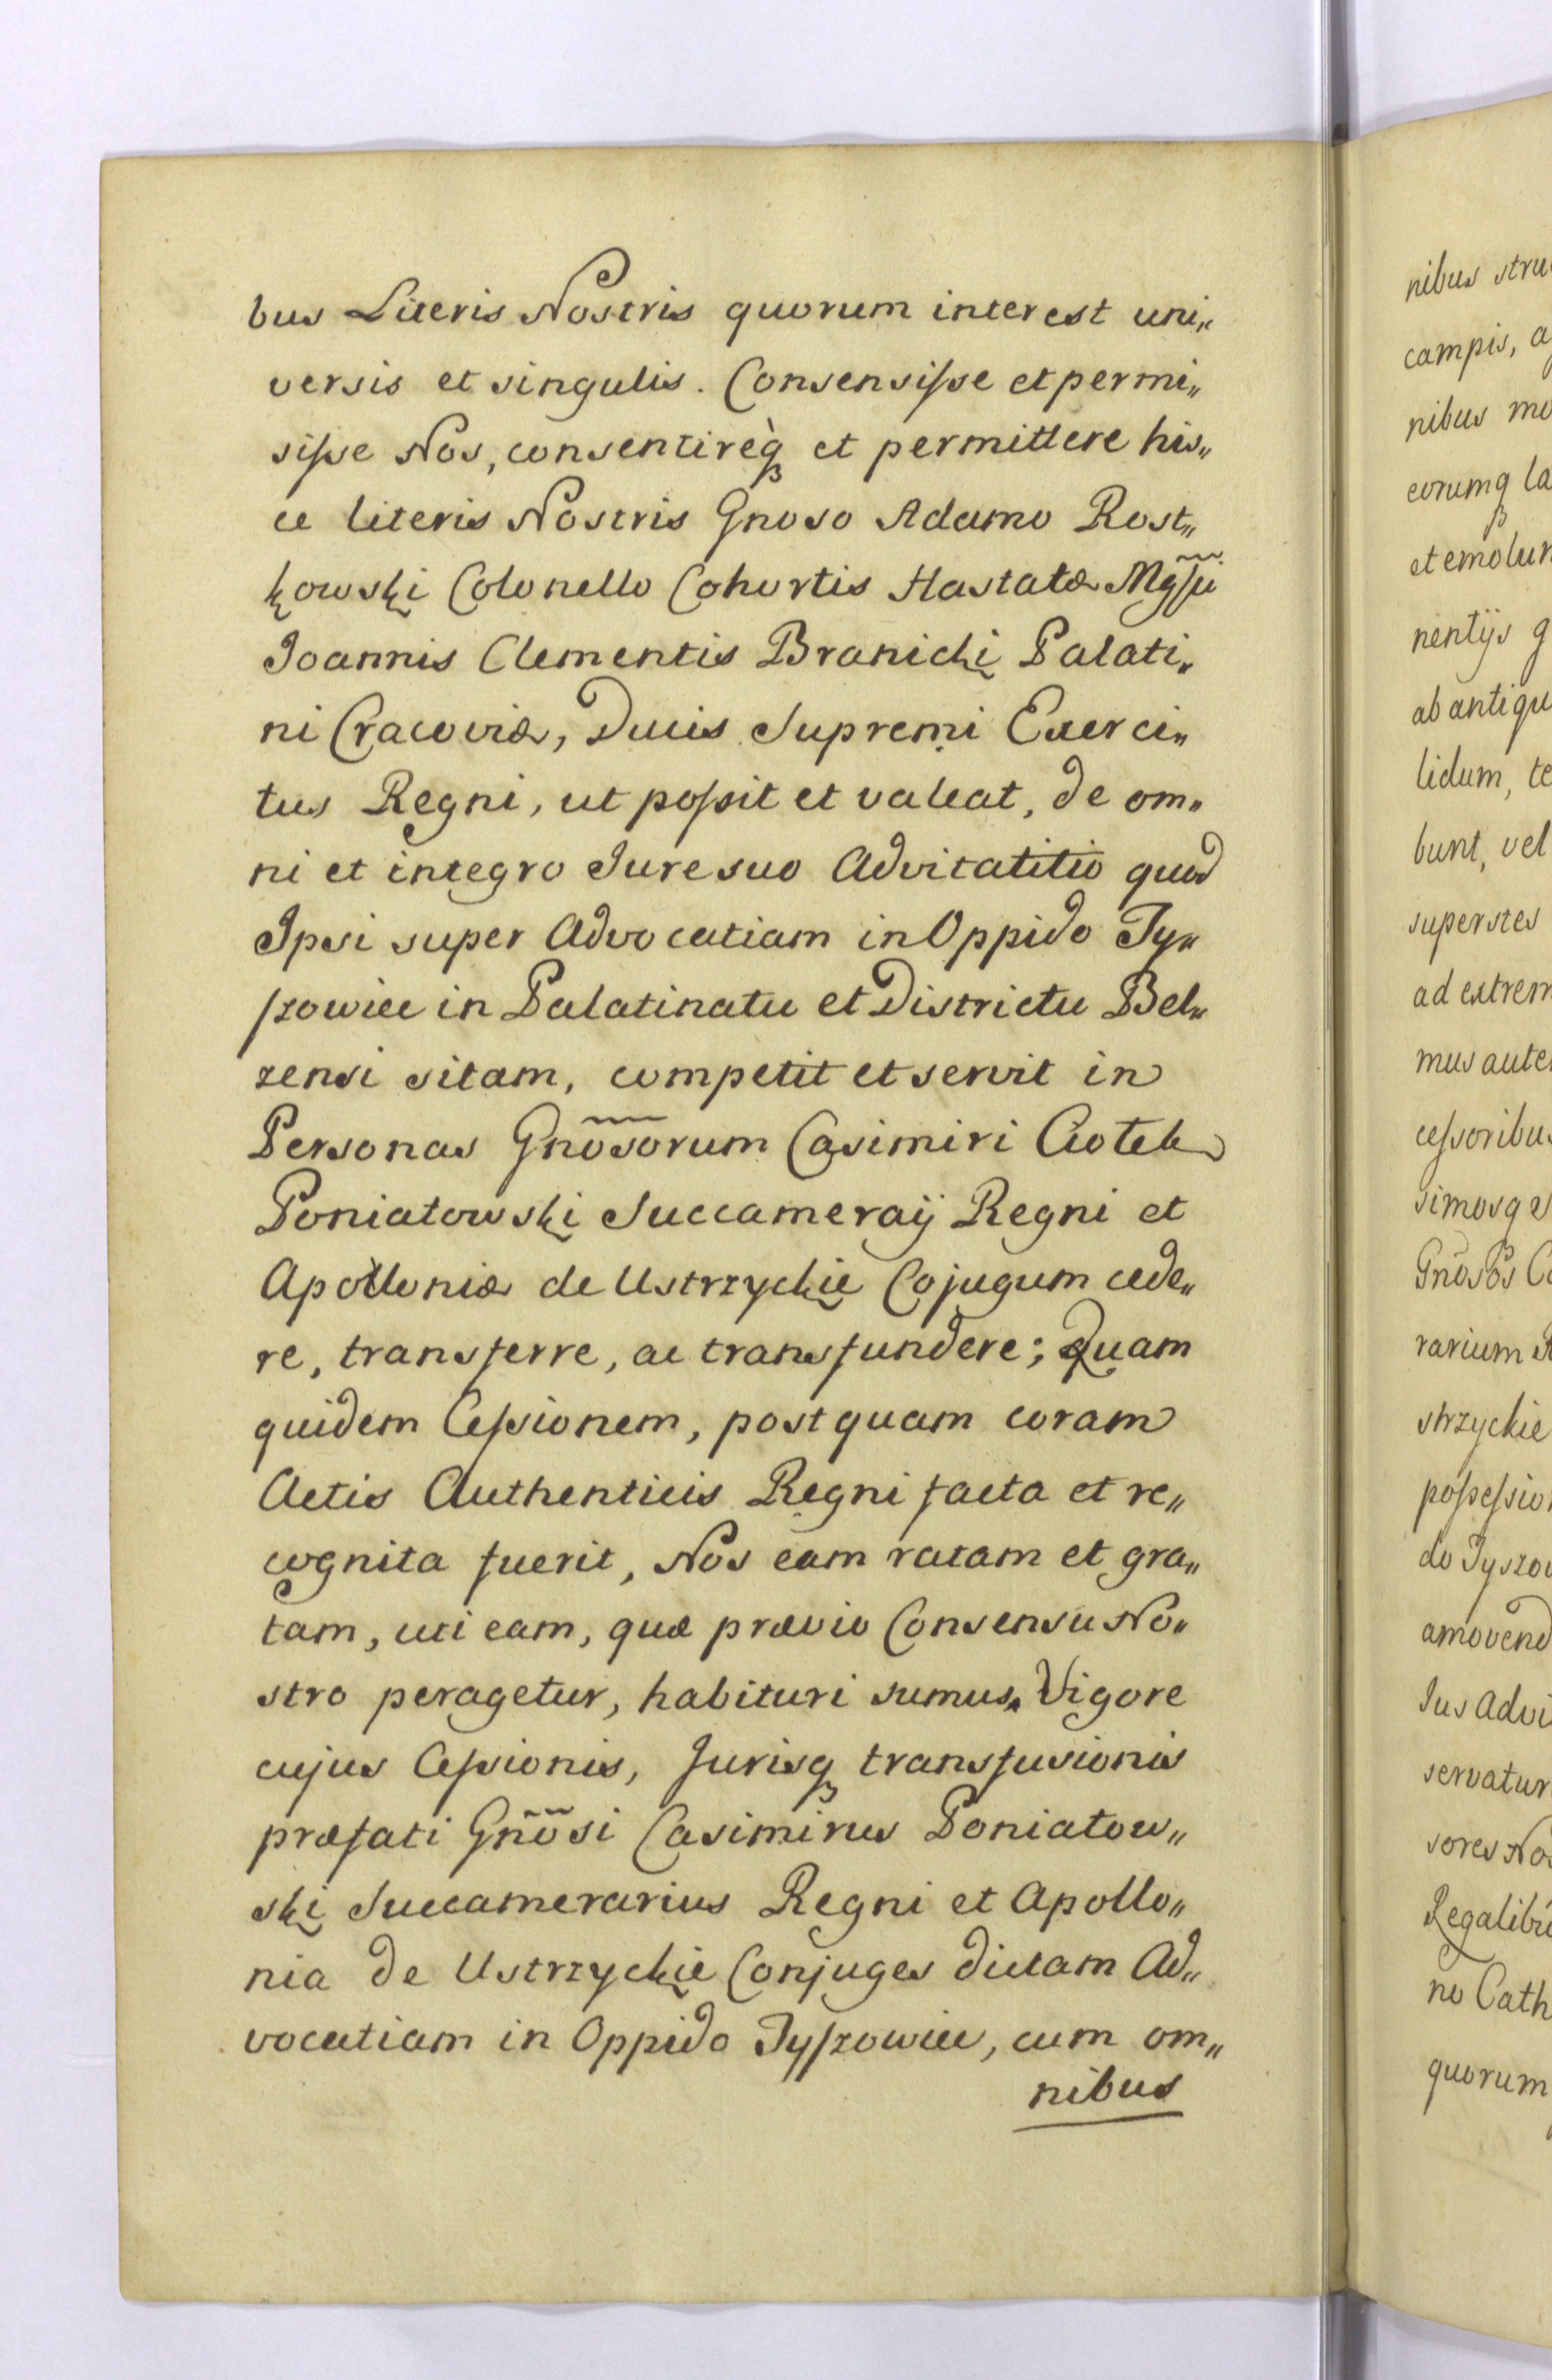 bus Literis Nostris quorum interest uni„
versis et singulis. Consensiſse et permi„
siſse Nos, consentireq̀ et permittere his„
ce literis Nostris Gnoso Adamo Rost„
kowski Colonello Cohortis Hastatæ Mg̃ſci
Joannis Clementis Branicki Palati„
ni Cracoviæ, Ducis Supremi Exerci„
tus Regni, ut poſsit et valeat, de om„
ni et integro Jure suo Advitatitio quod
Ipsi super Advocatiam in Oppido Ty„
ſzowce in Palatinatu et Districtu Bel„
zensi sitam, competit et servit in
Personas Gnõsorum Casimiri Ciołek
Poniatowski Succameraij Regni et
Apolloniæ de Ustrzyckie Cojugum cede„
re, transferre, ac transfundere; Quam
quidem Ceſsionem, postquam coram
Actis Authenticis Regni facta et re„
cognita fuerit, Nos eam ratam et gra„
tam, uti eam, quæ prævio Consensu No„
stro peragetur, habituri sumus. Vigore
cujus Ceſsionis, Jurisq transfusionis
præfati Gñõsi Casimirus Poniatow„
ski Succamerarius Regni et Apollo„
nia de Ustrzyckie Conjuges dictam Ad„
vocatiam in Oppido Tyſzowce, cum om„
nibus
nibus
campis,
nibus
eorumq
nentijs
ab antiqu
lidum, te
bunt, vel
superstes
ad extrem
mus aute
ceſsoribus
simosq
Gnõsos
rarium
strzyckie
poſseſsion
do Tyszow
amovend
Jus Advi
servatur
sores Nos
Regalibu
no Cath
quorum